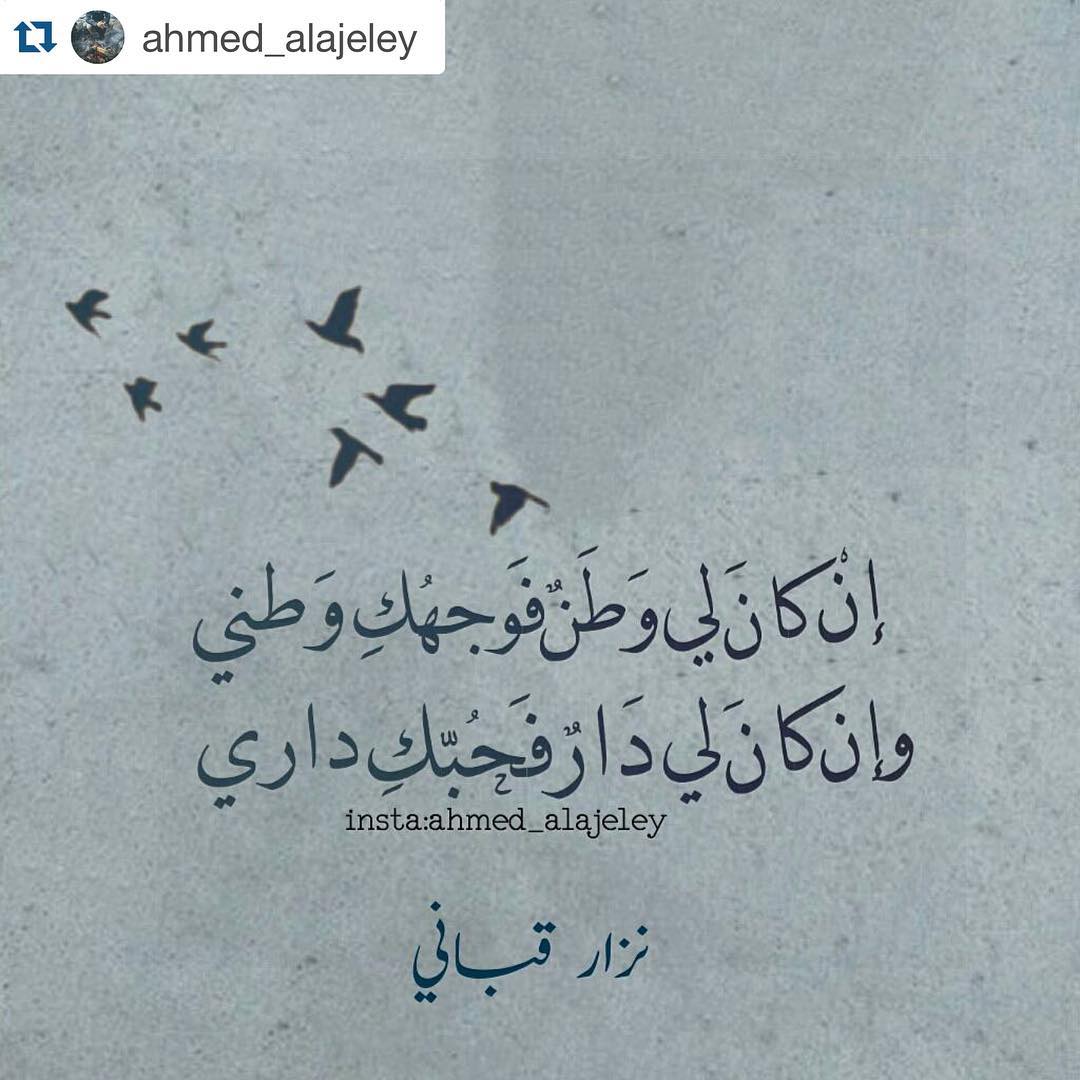 ahmed_alajeley
إنْ كانَ لي وَطَنٌ فَوَجهُكِ وَطني
وإن كانَ لي دَارٌ فَحُبّكِ داري
insta:ahmed_alajeley
نزار قباني